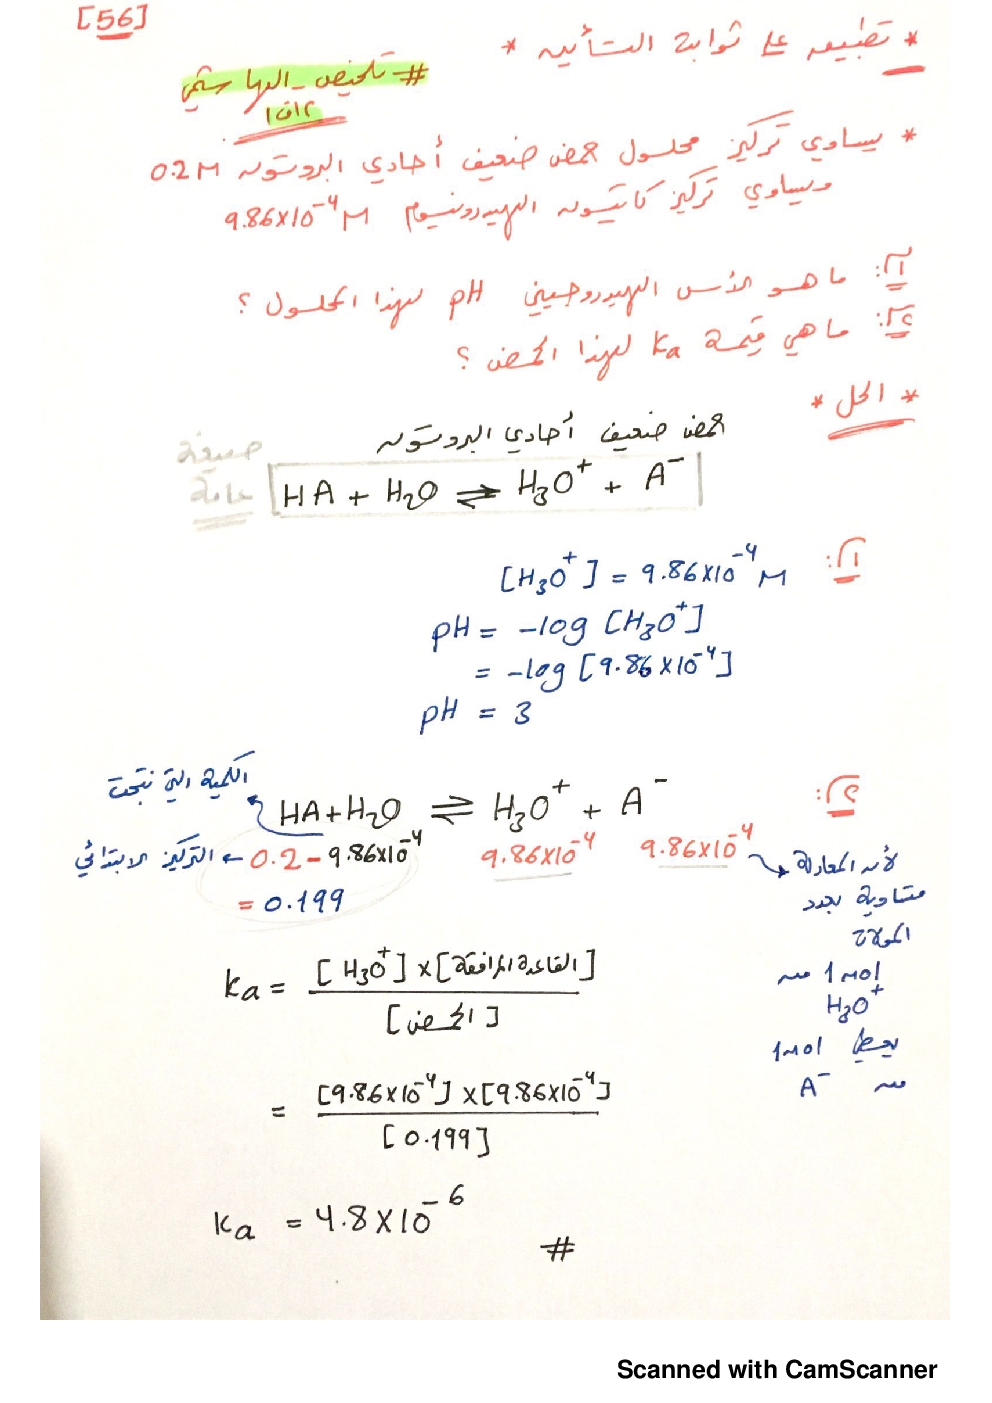 [56]
* تطبيق على ثوابت التأين *
# تلخيص_الهاشمي
١٢ف١
* يساوي تركيز محلول حمض ضعيف أحادي البروتون 0.2M
ويساوي تركيز كاتيون الهيدرونيوم 9.86x10⁻⁴ M
١: ما هو الأس الهيدروجيني pH لهذا المحلول ؟
٢: ما هي قيمة ka لهذا الحمض ؟
* الحل *
حمض ضعيف أحادي البروتون
صيغة
عامة
HA + H₂O ⇌ H₃O⁺ + A⁻
١:
[H₃O⁺] = 9.86x10⁻⁴ M
pH = -log [H₃O⁺]
= -log [9.86x10⁻⁴]
pH = 3
٢:
الكمية التي نتجت
HA + H₂O ⇌ H₃O⁺ + A⁻
التركيز الابتدائي ← 0.2 - 9.86x10⁻⁴ 9.86x10⁻⁴ 9.86x10⁻⁴
= 0.199
لأن المعادلة
متساوية بعدد
المولات
1mol من
H₃O⁺
يعطي 1mol
من A⁻
ka = [H₃O⁺] x [القاعدة المرافقة] / [الحمض]
= [9.86x10⁻⁴] x [9.86x10⁻⁴] / [0.199]
ka = 4.8x10⁻⁶
#
Scanned with CamScanner